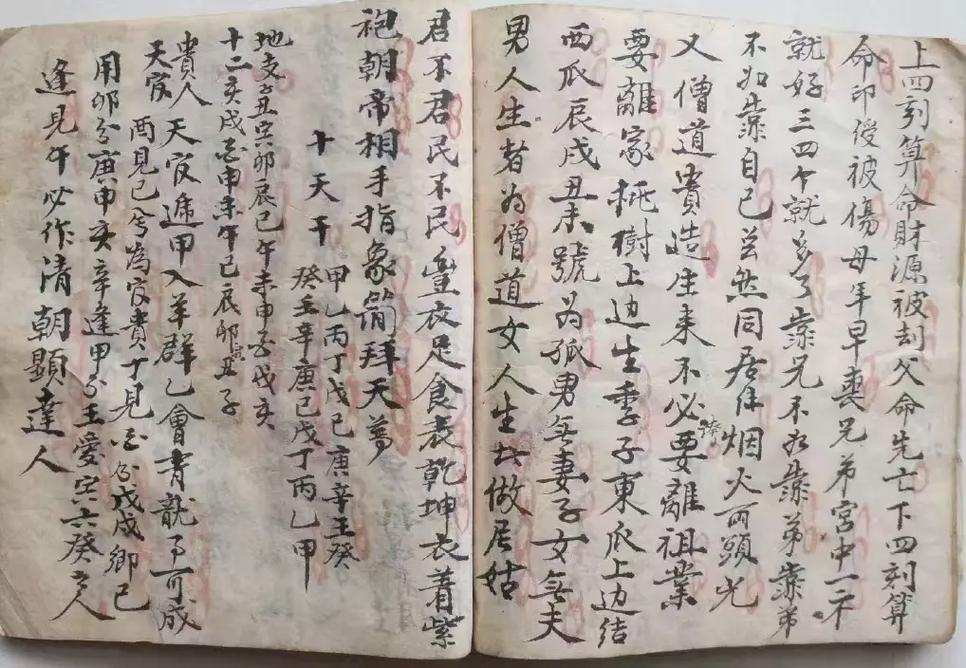 上四刻算命財源被刼父命先亡下四刻算
命印後被傷母年早喪兄弟宮中一不
就好三四个就多了靠兄不如靠弟靠弟
不如靠自己茲然同居住烟火两頭光
又僧道貴造生来不必要離祖業
要離家桃樹上边生季子東瓜上边结
西瓜辰戌丑未號为孤男無妻子女無夫
男人生者为僧道女人生此做尼姑
君不君民不民豊衣足食表乾坤衣着紫
袍朝帝相手指象简拜天尊
十天干 甲乙丙丁戊己庚辛王癸
癸壬辛庚己戊丁丙乙甲
地支子丑寅卯辰巳午未申酉戌亥
十二亥戌酉申未午巳辰卯寅丑子
貴人天官遁甲入羊群乙會青龍事可成
天官 酉見巳兮為官貴丁見酉兮戊戌鄉己
用卯兮庚申亥辛逢甲兮壬愛寅六癸之人
逢見午必作清朝顯達人